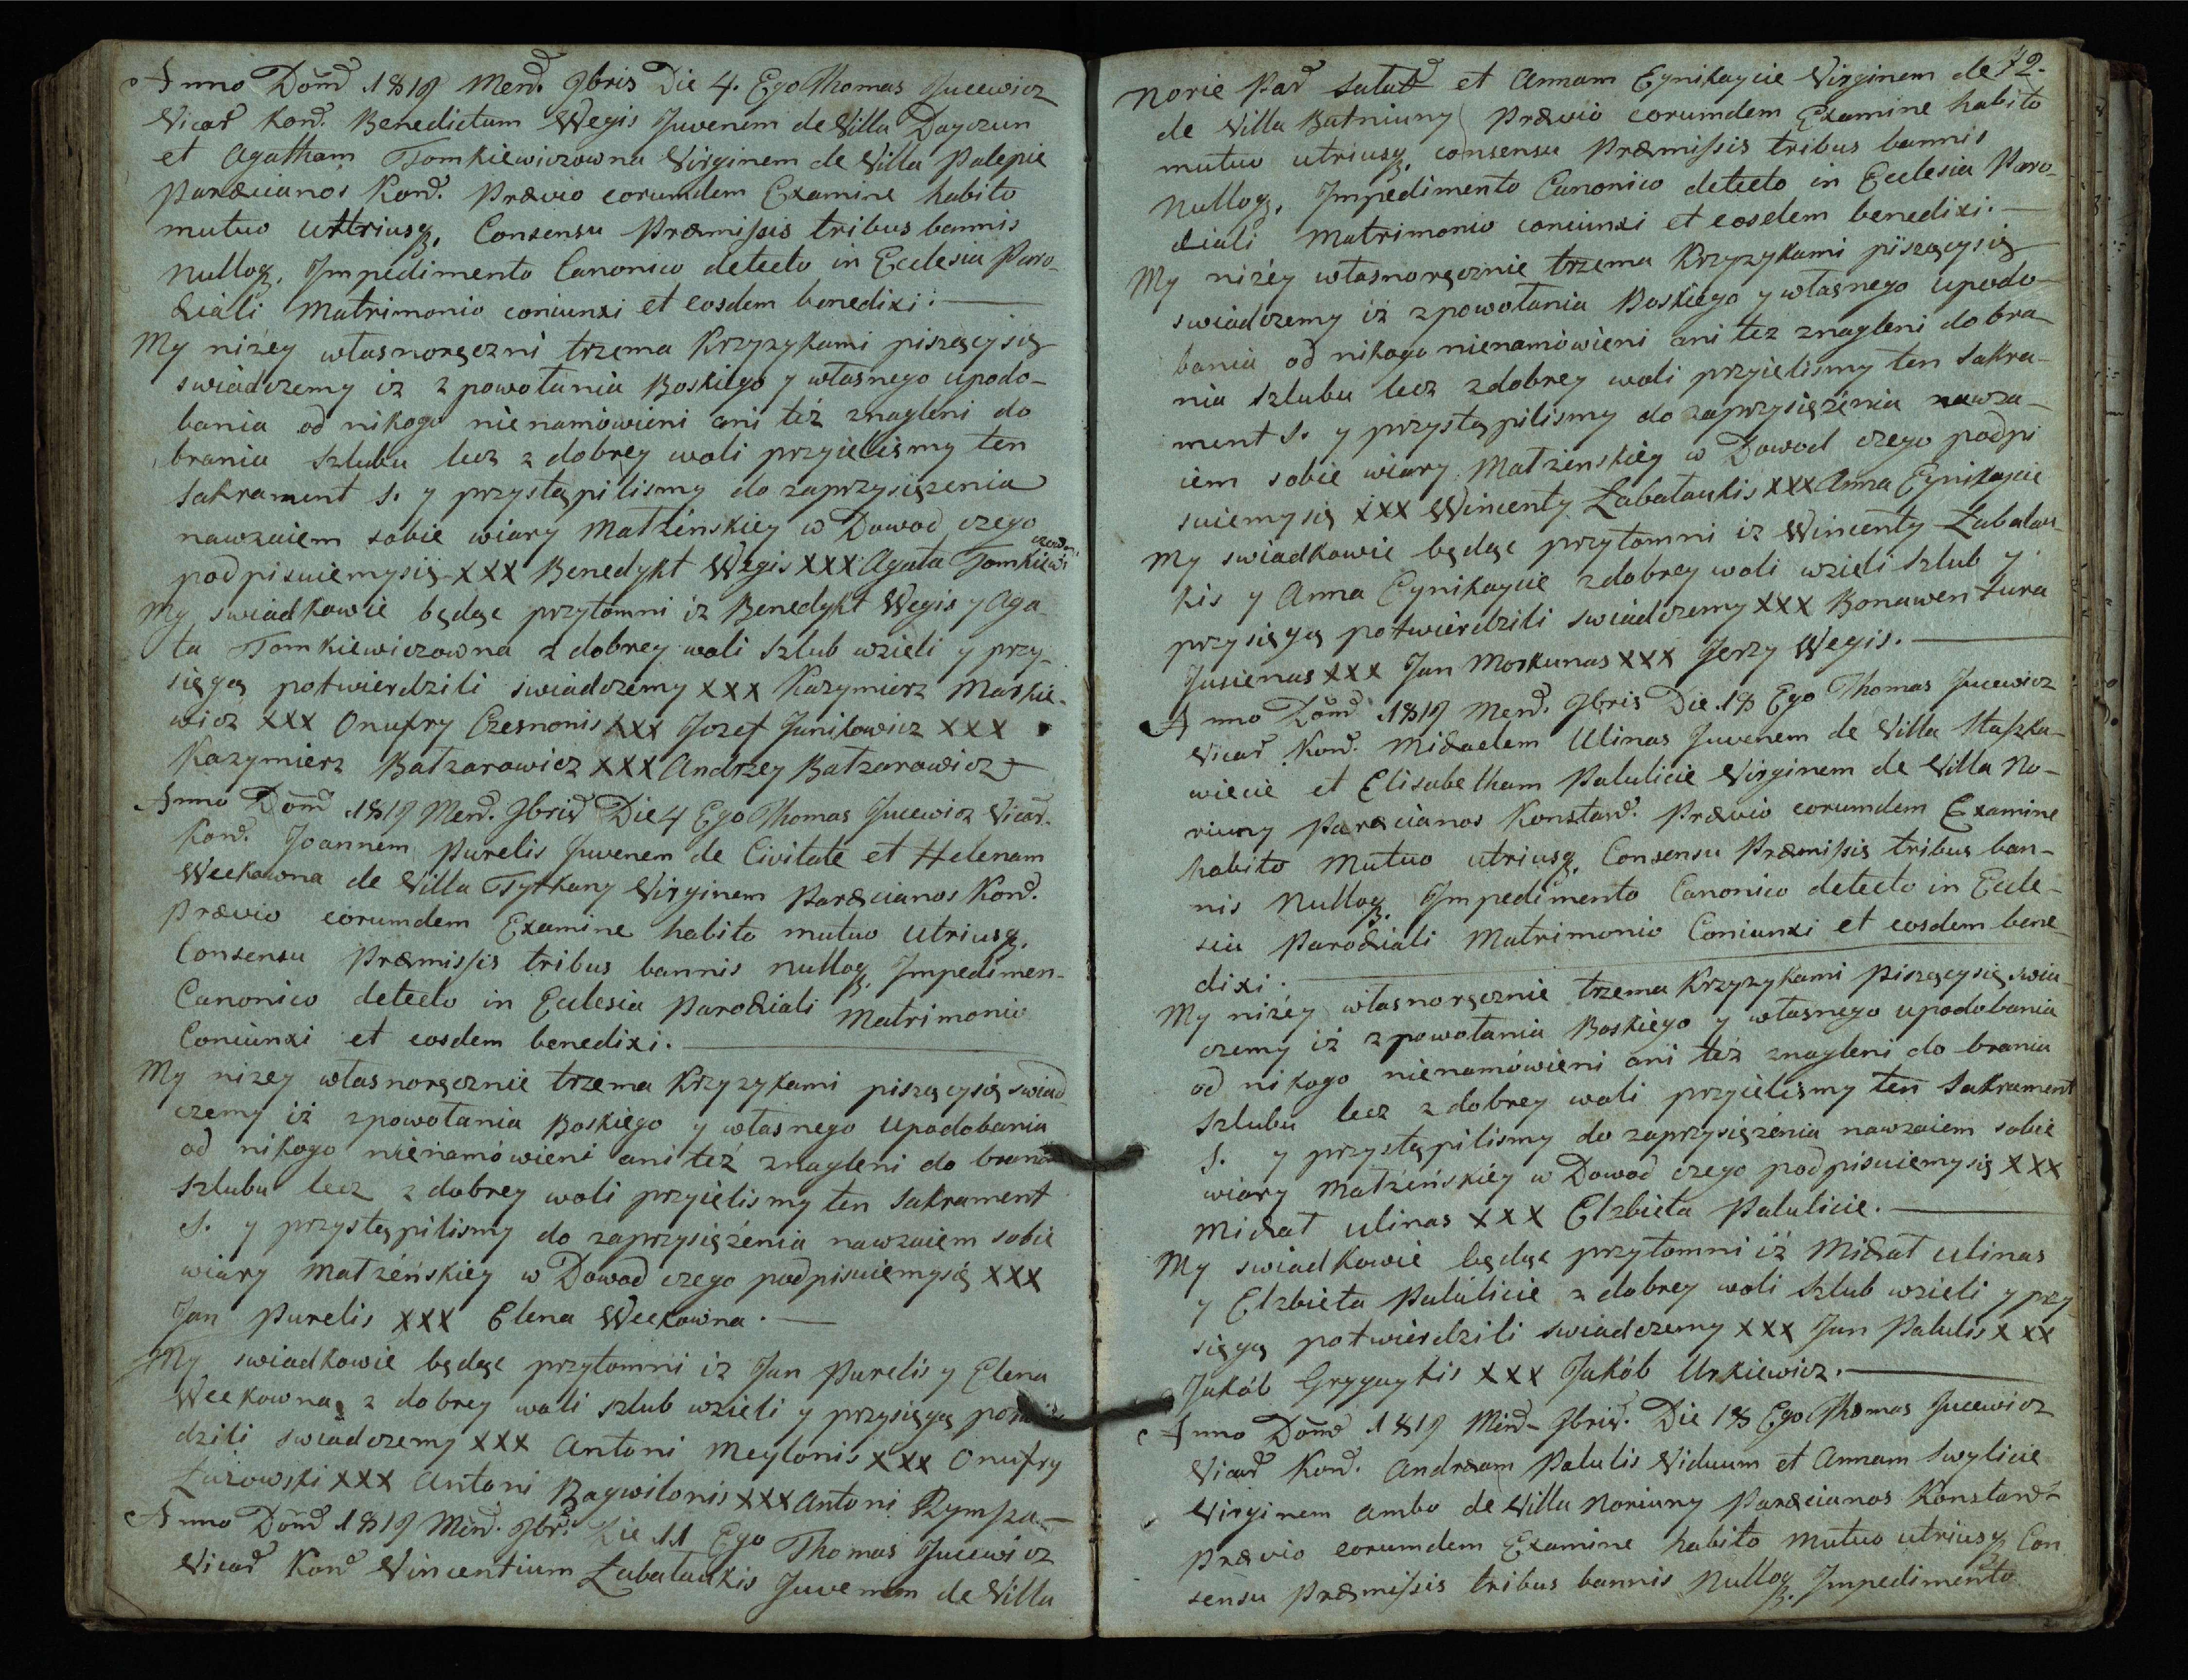 Anno Domd 1819 Mend. 9bris Die 4. Ego Thomas Jucewicz
Vicar Kond. Benedictum Wegis Juvenem de Villa Dayczun
et Agatham Tomkiewiczowna Virginem de Villa Palepie
Paræcianos Kond. Prævio eorumdem Examine habito
mutuo uttriusq. Consensu Præmissis tribus bannis
Nulloq. Impedimento Canonico detecto in Ecclesia Paro-
chiali Matrimonio coniunxi et eosdem benedixi.
My niżey własnoręczni trzema Krzyzykami piszącysię
swiadczemy iż z powołania Boskiego y własnego upodo-
bania od nikogo nienamówieni ani też znagleni do
brania szlubu lecz z dobrey woli przyieliśmy ten
Sakrament S. y przystąpilismy do zaprzysięzenia
nawzaiem sobie wiary Małżeńskiey w Dowod czego
podpisuiemysię XXX Benedykt Wegis XXX Agata Tomkiewi
czowna
My swiadkowie będąc przytomni iż Benedykt Wegis y Aga
ta Tomkiewiczowna z dobrey woli szlub wzieli y przy-
sięgą potwierdzili swiadczemy XXX Kazymierz Maskie-
wicz XXX Onufry Czesnonis XXX Jozef Janikowicz XXX
Kazymierz Balzarowicz XXX Andrzey Balzarowicz
Anno Domd 1819 Mend. 9brid Die 4 Ego Thomas Jucewicz Vicar.
Kond. Joannem Purelis Juvenem de Civitate et Helenam
Weekowna de Villa Tytkany Virginem Paræcianos Kond.
Prævio eorumdem Examine habito mutuo utriusq.
Consensu Præmissis tribus bannis nulloq. Impedimen-
Canonico detecto in Ecclesia Parochiali Matrimonio
Coniunxi et eosdem benedixi.
My nizey własnoręcznie trzema Krzyzykami piszącysię swiad
czemy iż zpowołania Boskiego y własnego upodobania
od nikogo nienamówieni ani też znagleni do brania
szlubu lecz z dobrey woli przyielismy ten Sakrament
S. y przystąpilismy do zaprzysiężenia nawzaiem sobie
wiary Małżeńskiey w Dowod czego podpisuiemysię XXX
Jan Purelis XXX Elena Weekowna.
My swiadkowie będąc przytomni iz Jan Purelis y Elena
Weekowna z dobrey woli szlub wzieli y przysięgą potwier
dzili swiadczemy XXX Antoni Meylonis XXX Onufry
Łuzowski XXX Antoni Bagwilonis XXX Antoni Rympsza
Anno Domd 1819 Mend. 9br. Die 11 Ego Thomas Jucewicz
Vicar Kond Vincentium Łabałaukis Juvenem de Villa
72.
Norie Pad Salatt et Annam Eynikaycie Virginem de
de Villa Batniuny Prævio eorumdem Examine habito
mutuo utriusq. consensu Præmissis tribus bannis
Nulloq. Impedimento Canonico detecto in Ecclesia Paro-
chiali Matrimonio coniunxi et eosdem benedixi.
My niżey własnoręcznie trzema Krzyzykami piszącysię
swiadczemy iż zpowołania Boskiego y własnego upodo-
bania od nikogo nienamówieni ani tez znagleni do bra-
nia szlubu lecz zdobrey woli przyielismy ten Sakra-
ment S. y przystąpilismy do zaprzysiężenia nawza-
iem sobie wiary Małżenskiey w Dowod czego podpi
suiemysię XXX Wincenty Łabałaukis XXX Anna Eynikaycie
My swiadkowie będąc przytomni iz Wincenty Łabałau-
kis y Anna Eynikaycie zdobrey woli wzieli szlub y
przysięgą potwierdzili swiadczemy XXX Bonawentura
Jusienas XXX Jan Moskunas XXX Jerzy Wegis.
Anno Domd 1819 Mend. 9bris Die 18 Ego Thomas Jucewicz
Vicar Kond. Michaelem Ulinas Juvenem de Villa Staszka-
wiecie et Elisabetham Palulicie Virginem de Villa No-
riuny Paræcianos Konstand. Prævio eorumdem Examine
habito Mutuo utriusq. Consensu Præmissis tribus ban-
nis Nulloq. Impedimento Canonico detecto in Eccle-
sia Parochiali Matrimonio Coniunxi et eosdem bene
dixi.
My niżéy własnoręcznie trzema Krzyzykami piszącysię swia
czemy iż zpowołania Boskiego y własnego upodobania
od nikogo nienamówieni ani też znagleni do brania
szlubu lecz z dobrey woli przyieliśmy ten Sakrament
S. y przystąpilismy do zaprzysiężenia nawzaiem sobie
wiary Małżeńskiéy w Dowod czego podpisuiemysię XXX
Michał Ulinas XXX Elzbieta Palulicie.
My swiadkowie będąc przytomni iż Michał Ulinas
y Elzbieta Palulicie z dobrey woli szlub wzieli y przy-
sięgą potwierdzili swiadczemy XXX Jan Palulis XXX
Jakób Grygaykis XXX Jakób Urkiewicz.
Anno Domd 1819 Mind. 9brid. Die 18 Ego Thomas Jucewicz
Vicar Kond. Andræam Palulis Viduum et Annam Swylicie
Virginem ambo de Villa Noriuny Paræcianos Konstand
Prævio eorumdem Examine habito Mutuo utriusq Con
sensu Præmissis tribus bannis Nulloq. Impedimento